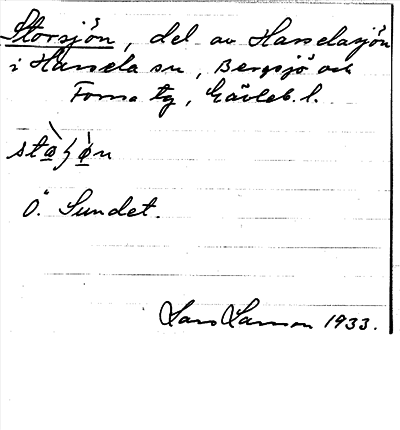 Storsjön, del av Hasselasjön
i Hassela sn, Bergsjö och
Forsa tg, Gävleb. l.
Ö. Sundet.
Lars Larsson 1933.